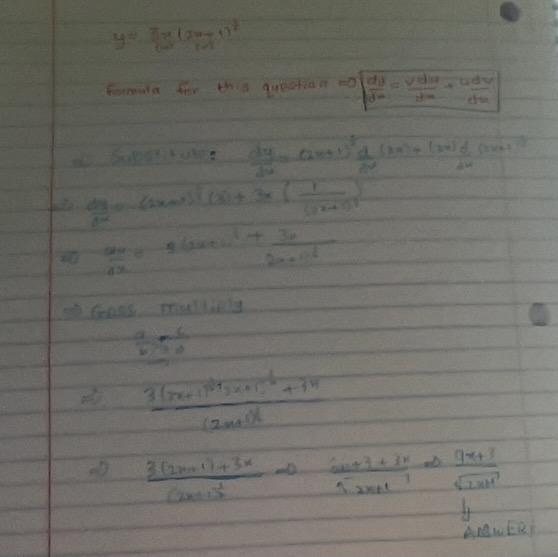 y = 3x (2x+1)^½
Formula for this question ⇒ dy/dx = vdu/dx + udv/dx
⇒ Substitute: dy/dx = (2x+1)^½ d/dx (3x) + (3x) d/dx (2x+1)^½
⇒ dy/dx = (2x+1)^½ (3) + 3x (1/(2x+1)^½)
⇒ dy/dx = 3(2x+1)^½ + 3x/(2x+1)^½
⇒ Cross multiply
a/b c/d
⇒ 3(2x+1)^½ (2x+1)^½ + 3x/(2x+1)^½
⇒ 3(2x+1)+3x/(2x+1)^½ ⇒ 6x+3+3x/√2x+1 ⇒ 9x+3/√2x+1
ANSWER